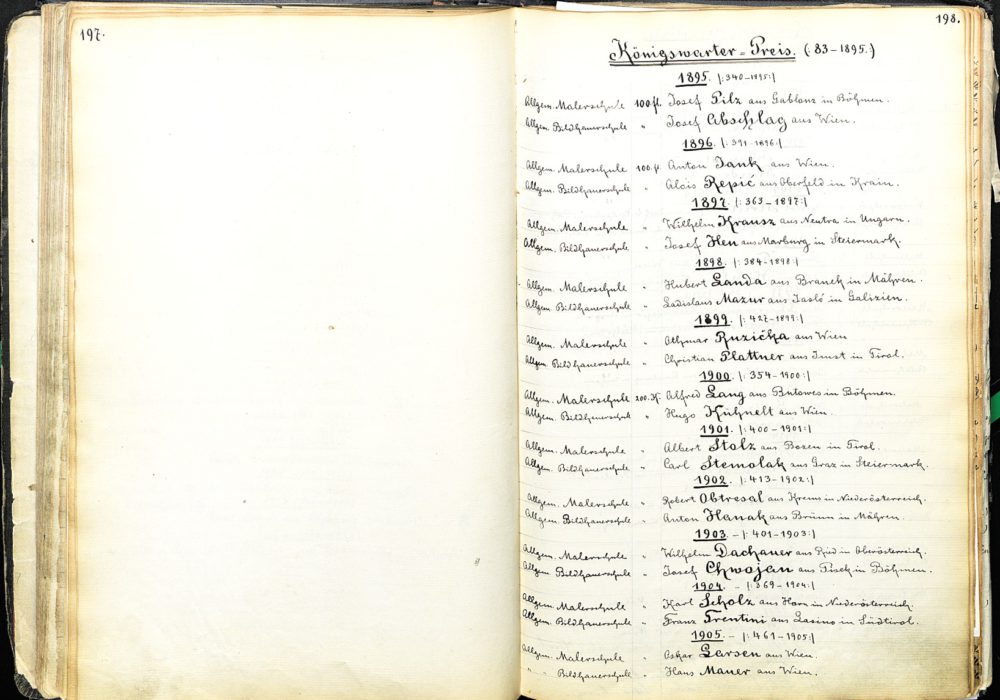 197.
198.
Königswarter-Preis. (:83-1895.)
1895. |:340-1895:|
Allgem. Malerschule 100 fl. Josef Pilz aus Gablonz in Böhmen.
Allgem. Bildhauerschule " Josef Abschlag aus Wien.
1896. |:391-1896:|
Allgem. Malerschule 100 fl. Anton Jank aus Wien.
Allgem. Bildhauerschule " Alois Repić aus Oberfeld in Krain.
1897. |:363-1897:|
Allgem. Malerschule " Wilhelm Krausz aus Neutra in Ungarn.
Allgem. Bildhauerschule " Josef Heu aus Marburg in Steiermark.
1898. |:384-1898:|
Allgem. Malerschule " Hubert Landa aus Branek in Mähren.
Allgem. Bildhauerschule " Ladislaus Mazur aus Jasló in Galizien.
1899. |:427-1899:|
Allgem. Malerschule " Othmar Ruzička aus Wien
Allgem. Bildhauerschule " Christian Plattner aus Imst in Tirol.
1900. |:354-1900:|
Allgem. Malerschule 200 K. Alfred Lang aus in Böhmen.
Allgem. Bildhauerschule " Hugo Kühnelt aus Wien.
1901. |:400-1901:|
Allgem. Malerschule " Albert Stolz aus Bozen in Tirol.
Allgem. Bildhauerschule " Carl Stemolak aus Graz in Steiermark.
1902. |:413-1902:|
Allgem. Malerschule " Robert Obtresal aus Krems in Niederösterreich.
Allgem. Bildhauerschule " Anton Hanak aus Brünn in Mähren.
1903. - |:401-1903:|
Allgem. Malerschule " Wilhelm Dachauer aus Ried in Oberösterreich.
Allgem. Bildhauerschule " Josef Chwojan aus Pisek in Böhmen.
1904. - |:369-1904:|
Allgem. Malerschule " Karl Scholz aus Horn in Niederösterreich.
Allgem. Bildhauerschule " Franz Trentini aus Lasino in Südtirol.
1905. - |:461-1905:|
Allgem. Malerschule " Oskar Larsen aus Wien.
" " Bildhauerschule " Hans Mauer aus Wien.